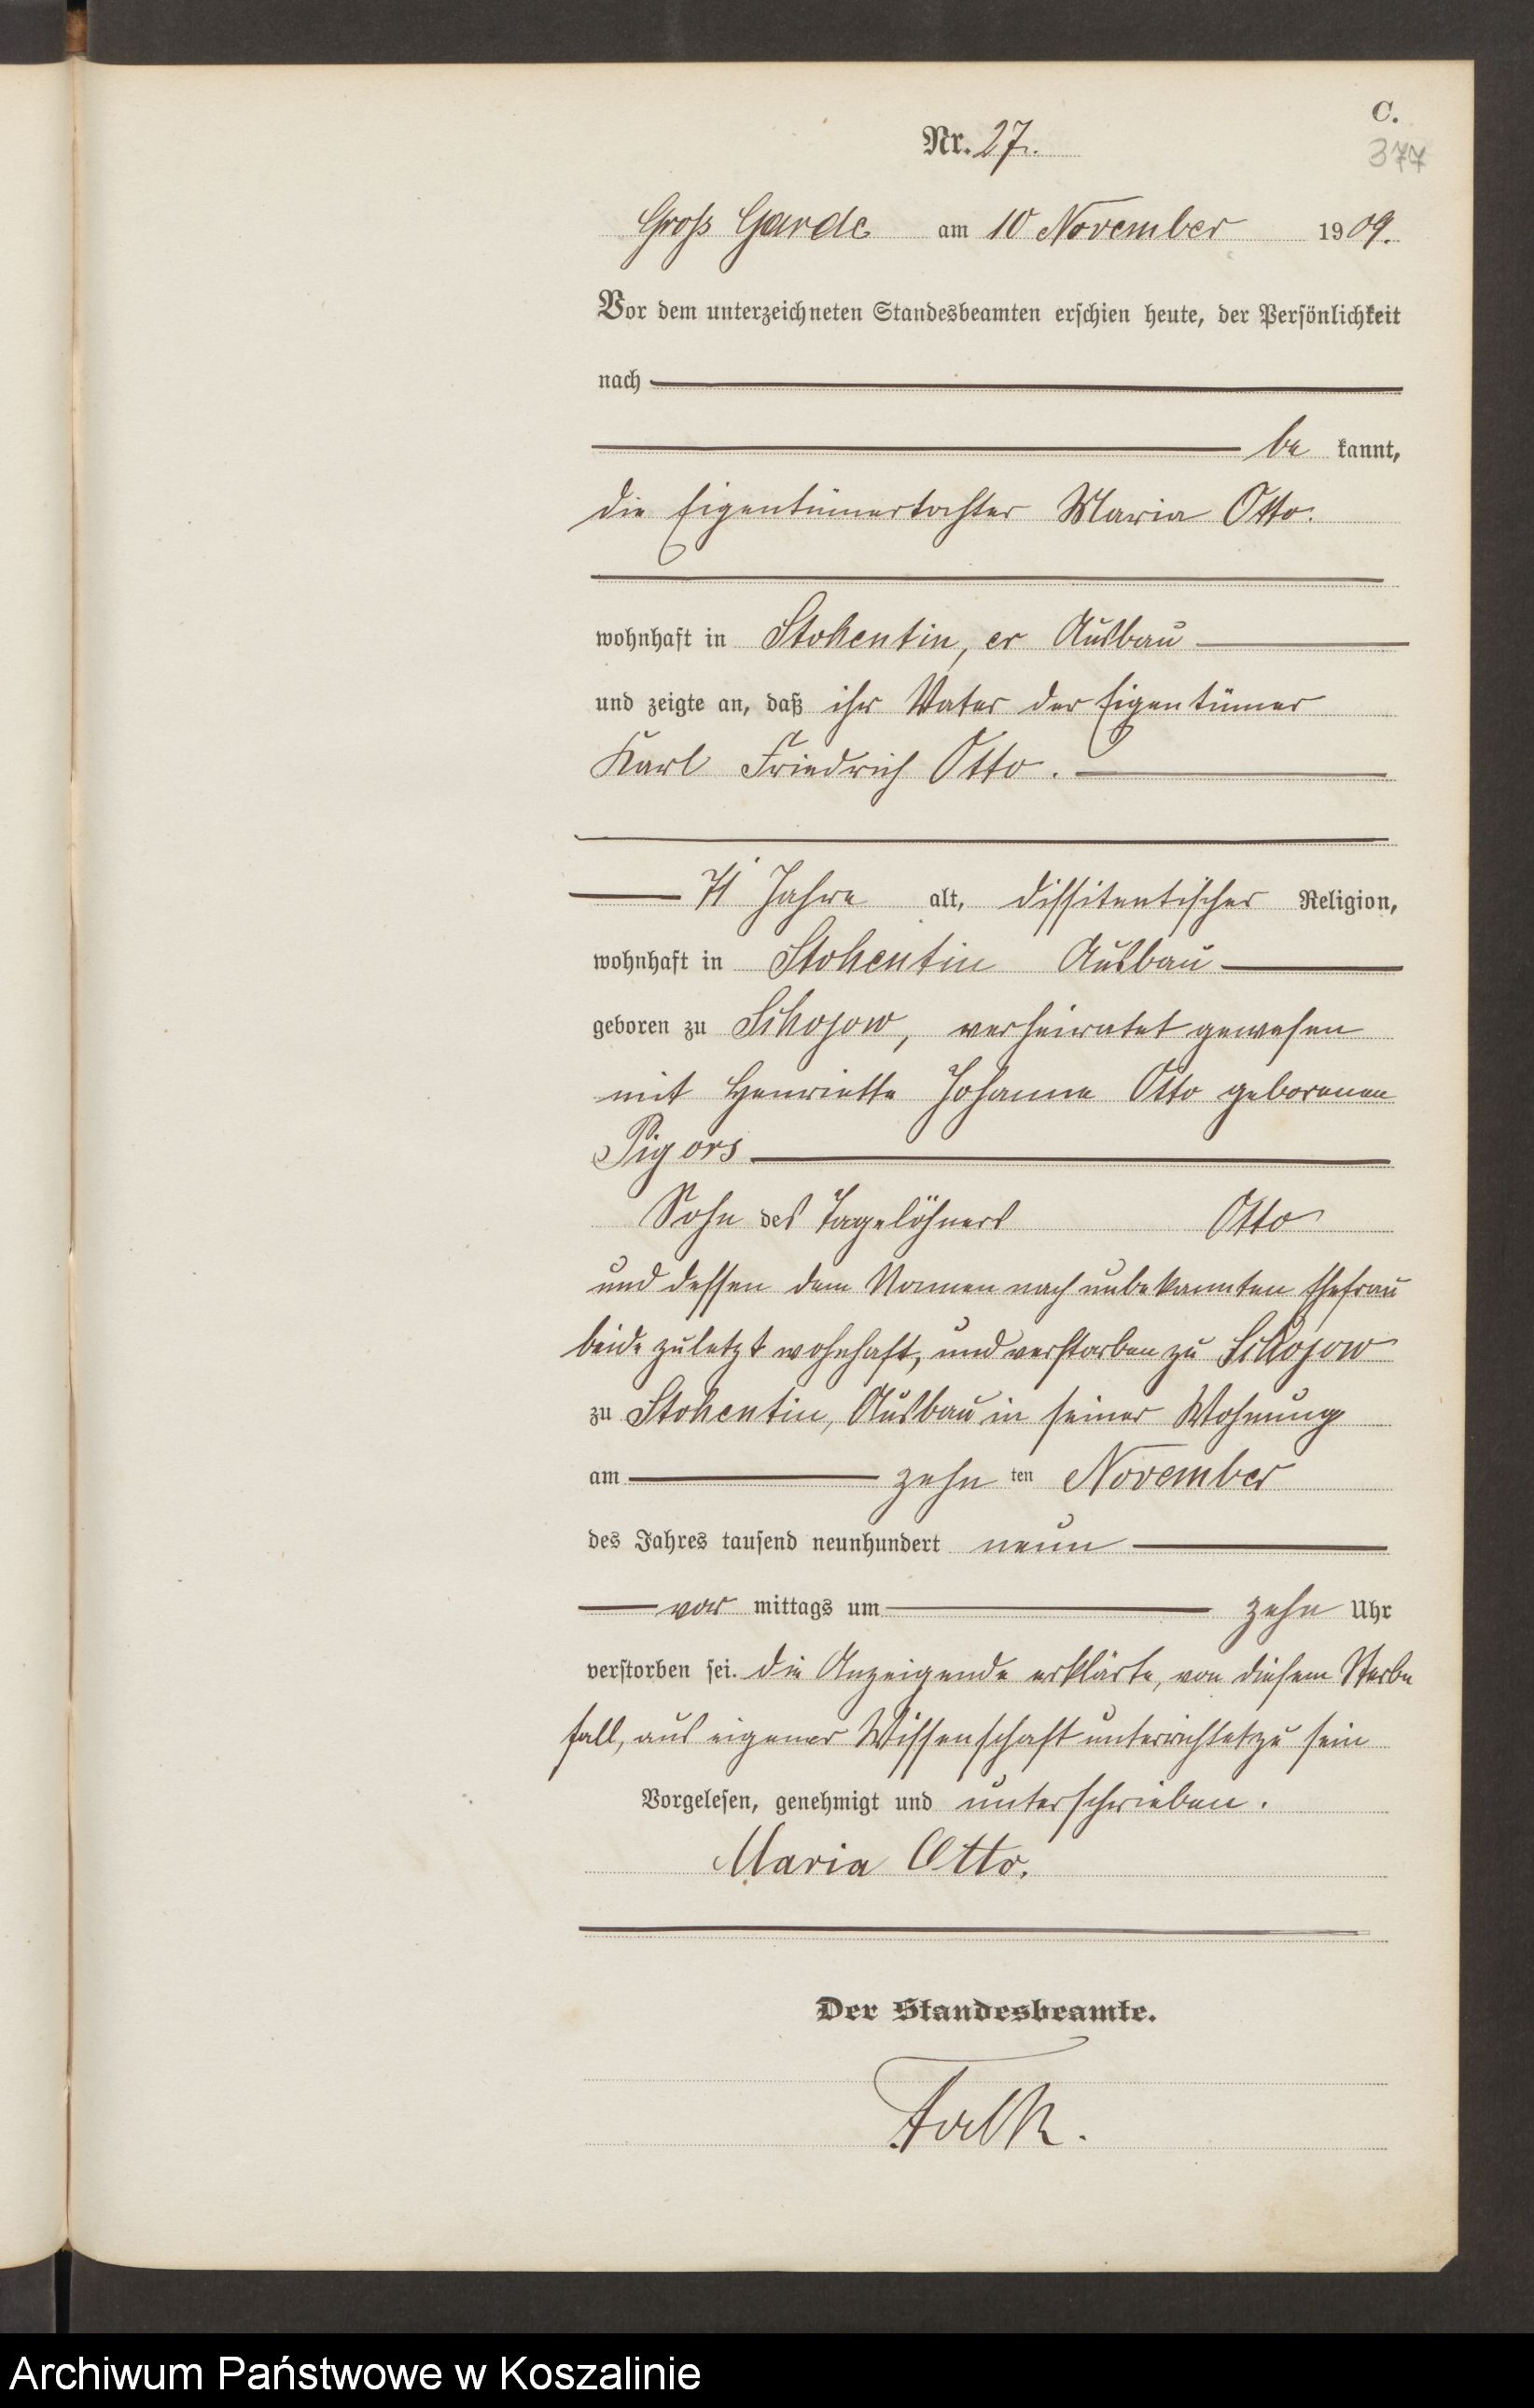 C.
Nr. 27.
377
Gross Garde am 10 November 1909.
Vor dem unterzeichneten Standesbeamten erschien heute, der Persönlichkeit
nach
be kannt,
die Eigentümertochter Maria Otto.
wohnhaft in Stohentin, er Ausbau
und zeigte an, daß ihr Vater der Eigentümer
Karl Friedrich Otto.
71 Jahre alt, dissitentischer Religion,
wohnhaft in Stohentin Ausbau
geboren zu Schojow, verheiratet gewesen
mit Henriette Johanne Otto geborenen
Pigors
Sohn des Tagelöhners Otto
und dessen dem Namen nach unbekannten Ehefrau
beide zuletzt wohnhaft, und verstorben zu Schojow
zu Stohentin, Ausbau in seiner Wohnung
am zehn ten November
des Jahres tausend neunhundert neun
vor mittags um zehn Uhr
verstorben sei. die Anzeigende erklärte, von diesem Sterbe
fall, aus eigener Wissenschaft unterrichtet zu sein
Vorgelesen, genehmigt und unterschrieben.
Maria Otto.
Der Standesbeamte.
Falk.
Archiwum Państwowe w Koszalinie